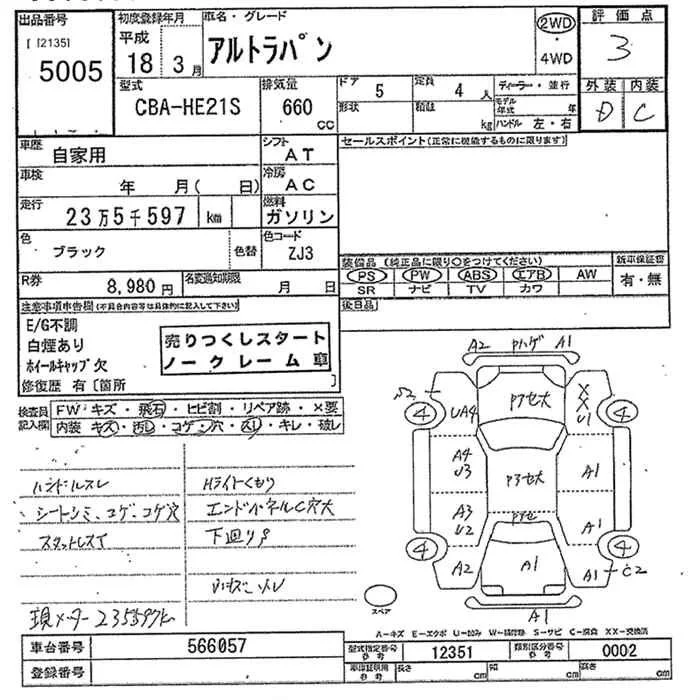 出品番号
[12135]
5005
初度登録年月
平成
18 3月
車名・グレード
アルトラパン
2WD
4WD
評価点
3
外装 内装
D C
型式
CBA-HE21S
排気量
660
cc
ドア 5
定員 4 人
形状
積載 kg
ディーラー・並行
モデル年式 年
ハンドル 左・右
車歴
自家用
シフト
AT
セールスポイント(正常に機能するものに限ります)
車検
年 月( 日)
冷房
AC
走行
23万5千597 km
燃料
ガソリン
色
ブラック
色替
色コード
ZJ3
装備品(純正品に限り○をつけてください)
新車保証書
PS PW ABS エアB AW
有・無
SR ナビ TV カワ
R券
8,980円
名変通知期限
月 日
後日品
注意事項車告欄(不具合内容等は具体的に記入して下さい)
E/G不調
白煙あり
ホイールキャップ欠
修復歴 有〔箇所 〕
売りつくしスタート
ノークレーム車
検査員記入欄
FW キズ・飛石・ヒビ割・リペア跡・×要
内装 キズ・汚レ・コゲ・穴・スレ・キレ・破レ
ハンドルスレ
Hライトくもり
シートシミ、コゲ、コゲ穴
エンドパネルC穴大
スタットレス
下廻りS
現メーター235597km
A2 Pハゲ A1
S2
4
UA4
P7セ大
XX
U1
4
A4
U3
P3セ大
A1
A3
U2
P7セ
A1
4
4
A2
A1
A1
C2
A1
スペア
A-キズ E-エクボ U-凹み W-補修跡 S-サビ C-腐食 XX-交換済
車台番号
566057
型式指定番号
参考
12351
類別区分番号
参考
0002
登録番号
車庫証明用
参考
長さ cm
幅 cm
高さ cm